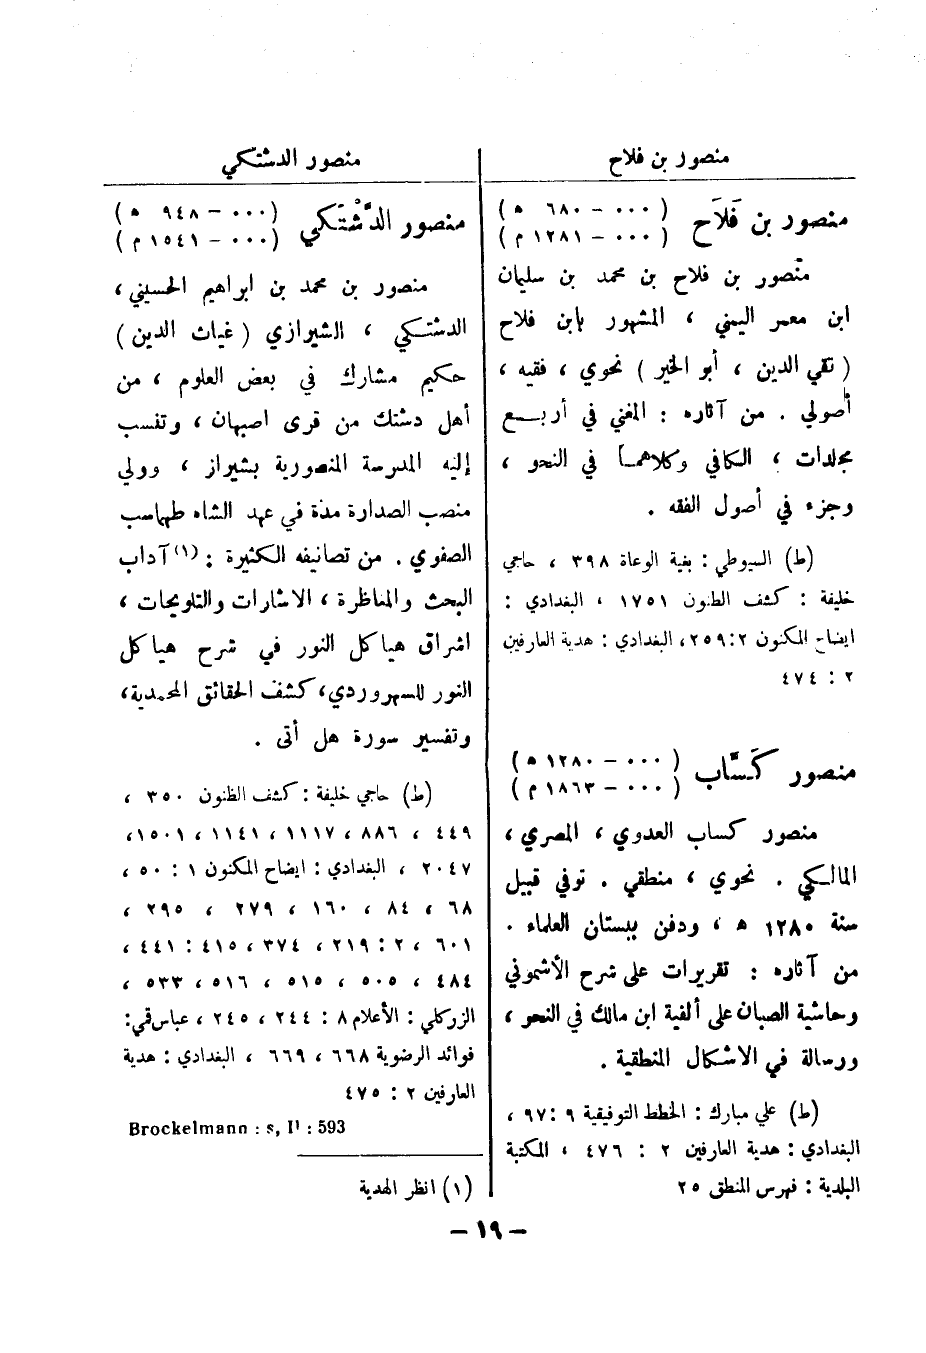 منصور بن فلاح
منصور بن فَلاَح ( ٠٠٠ – ٦٨٠ ه )
( ٠٠٠ – ١٢٨١ م )
منصور بن فلاح بن محمد بن سليمان
ابن معمر اليمني ، المشهور بابن فلاح
( تقي الدين ، أبو الخير ) نحوي ، فقيه ،
أصولي . من آثاره : المغني في أربع
مجلدات ، الكافي وكلاهما في النحو ،
وجزء في أصول الفقه .
(ط) السيوطي : بغية الوعاة ٣٩٨ ، حاجي
خليفة : كشف الظنون ١٧٥١ ، البغدادي :
ايضاح المكنون ٢ : ٢٥٩ ، البغدادي : هدية العارفين
٢ : ٤٧٤
منصور كَسَّاب ( ٠٠٠ – ١٢٨٠ ه )
( ٠٠٠ – ١٨٦٣ م )
منصور كساب العدوي ، المصري ،
المالكي . نحوي ، منطقي . توفي قبيل
سنة ١٢٨٠ ه ، ودفن ببستان العلماء .
من آثاره : تقريرات على شرح الأشموني
وحاشية الصبان على ألفية ابن مالك في النحو ،
ورسالة في الاشكال المنطقية .
(ط) علي مبارك : الخطط التوفيقية ٩ : ٩٧ ،
البغدادي : هدية العارفين ٢ : ٤٧٦ ، المكتبة
البلدية : فهرس المنطق ٢٥
منصور الدشتكي
منصور الدَّشْتَكي ( ٠٠٠ – ٩٤٨ ه )
( ٠٠٠ – ١٥٤١ م )
منصور بن محمد بن ابراهيم الحسيني ،
الدشتكي ، الشيرازي ( غياث الدين )
حكيم مشارك في بعض العلوم ، من
أهل دشتك من قرى اصبهان ، وتنسب
إليه المدرسة المنصورية بشيراز ، وولي
منصب الصدارة مدة في عهد الشاه طهماسب
الصفوي . من تصانيفه الكثيرة : (١) آداب
البحث والمناظرة ، الاشارات والتلويحات ،
اشراق هياكل النور في شرح هياكل
النور للسهروردي ، كشف الحقائق المحمدية ،
وتفسير سورة هل أتى .
(ط) حاجي خليفة : كشف الظنون ٣٥٠ ،
٤٤٩ ، ٨٨٦ ، ١١١٧ ، ١١٤١ ، ١٥٠١ ،
٢٠٤٧ ، البغدادي : ايضاح المكنون ١ : ٥٠ ،
٦٨ ، ٨٤ ، ١٦٠ ، ٢٧٩ ، ٢٩٥ ،
٦٠١ ، ٢ : ٢١٩ ، ٣٧٤ ، ٤١٥ : ٤٤١ ،
٤٨٤ ، ٥٠٥ ، ٥١٥ ، ٥١٦ ، ٥٣٣ ،
الزركلي : الأعلام ٨ : ٢٤٤ ، ٢٤٥ ، عباس قمي :
فوائد الرضوية ٦٦٨ ، ٦٦٩ ، البغدادي : هدية
العارفين ٢ : ٤٧٥
Brockelmann : s, II : 593
(١) انظر الهدية
– ١٩ –